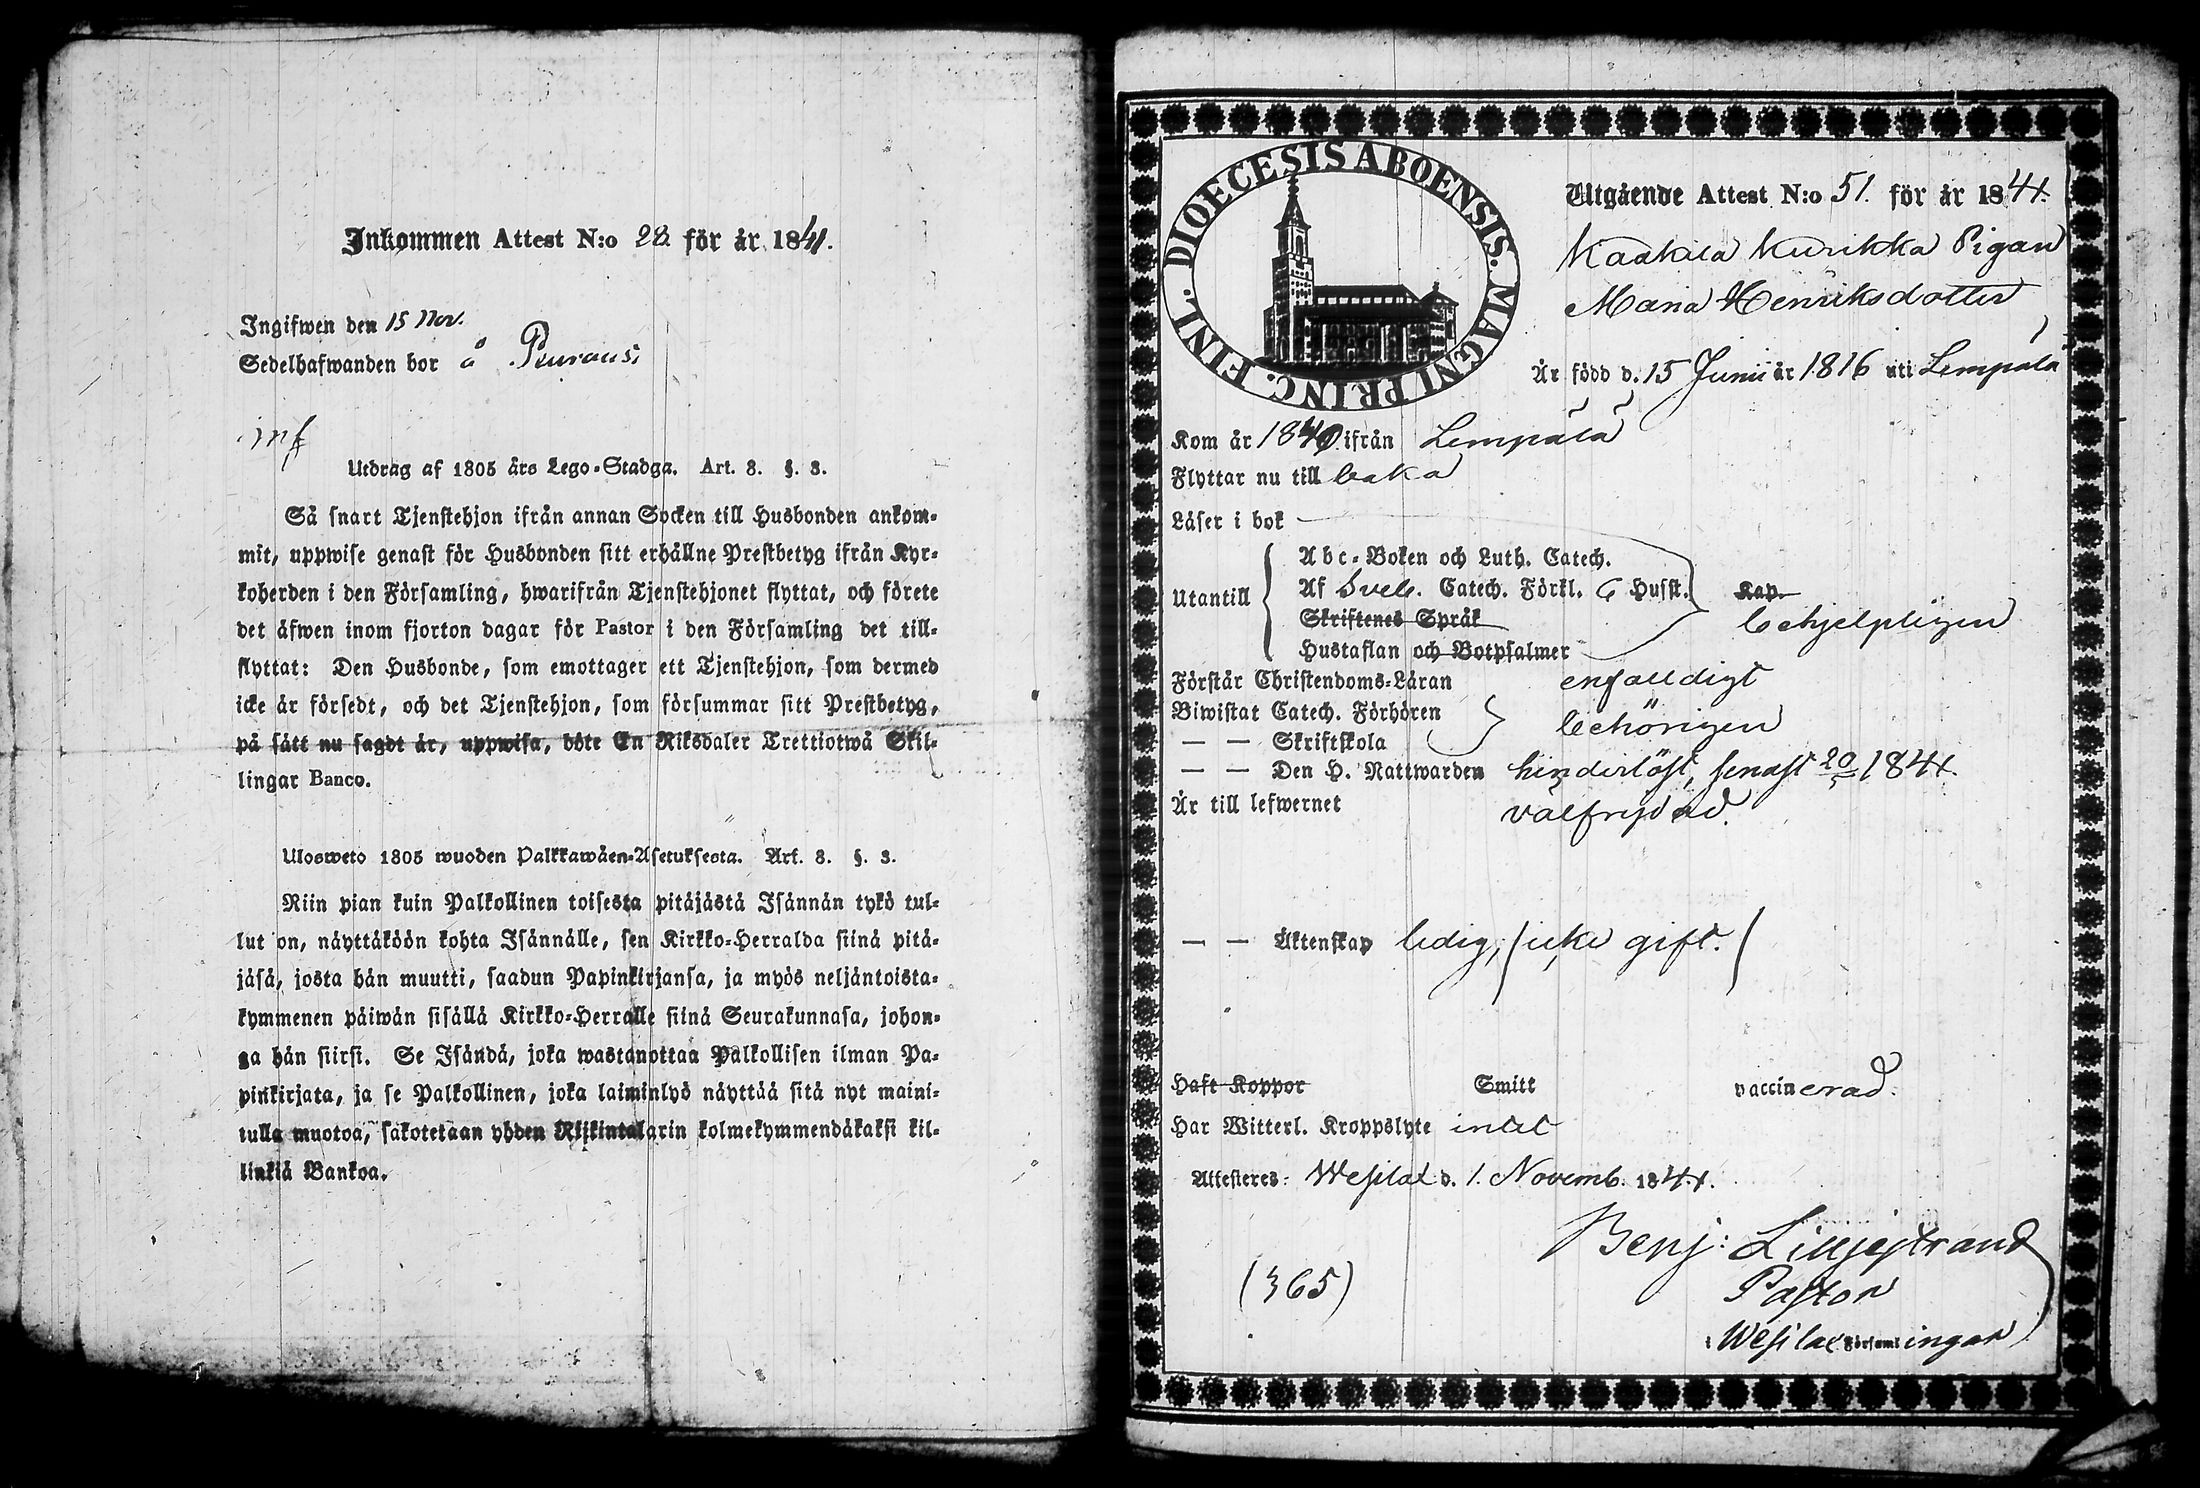 Inkommen Attest N:o 28. för år 1841.
Ingifwen den 15 Nov.
Sedelhafwanden bor å Peuransi
inf
Utdrag af 1805 års Lego-Stadga. Art. 8. §. 3.
Så snart Tjenstehjon ifrån annan Socken till Husbonden ankom-
mit, uppwise genast för Husbonden sitt erhållne Prestbetyg ifrån Kyr-
koherden i den Församling, hwarifrån Tjenstehjonet flyttat, och förete
det äfwen inom fjorton dagar för Pastor i den Församling det till-
flyttat: Den Husbonde, som emottager ett Tjenstehjon, som dermed
icke är försedt, och det Tjenstehjon, som försummar sitt Prestbetyg,
på sätt nu sagdt är, uppwisa, böte En Riksdaler Trettiotwå Skil-
lingar Banco.
Ulosweto 1805 wuoden Palkkawäen-Asetuksesta. Art. 8. §. 3.
Niin pian kuin Palkollinen toisesta pitäjästä Isännän tykö tul-
lut on, näyttäköön kohta Isännälle, sen Kirkko-Herralda siinä pitä-
jäsä, josta hän muutti, saadun Papinkirjansa, ja myös neljäntoista-
kymmenen päiwän sisällä Kirkko-Herralle siinä Seurakunnasa, johon-
ga hän siirsi. Se Isändä, joka wastanottaa Palkollisen ilman Pa-
pinkirjata, ja se Palkollinen, joka laiminlyö näyttää sitä nyt maini-
tulla muotoa, sakotetaan yhden Riikintalarin kolmekymmendäkaksi kil-
linkiä Bankoa.
DIOECESIS ABOENSIS. MAGNI PRINC. FINL.
Utgående Attest N:o 51. för år 1841.
Kaakila Kurikka Pigan
Maria Henriksdotter
Är född d. 15 Junii år 1816 uti Lempälä
Kom år 1840 ifrån Lempälä
Flyttar nu till baka
Läser i bok
Abc-Boken och Luth. Catech.
Utantill Af Sveb. Catech. Förkl. C Husst. Kap.
Skriftenes Språk behjelpligen
Hustaflan och Botpsalmer
Förstår Christendoms-Läran enfalldigt
Biwistat Catech. Förhören behörigen
— — Skriftskola
— — Den H. Nattwarden hinderlöst, senast 20/5 1841.
Är till lefwernet välfrejdad.
— — Äktenskap ledig, / icke gift. /
Haft Koppor Smitt vaccinerad.
Har Witterl. Kroppslyte intet
Attesteres: Wesilax d. 1. Novemb. 1841.
Benj: Lilljestrand
(365) Pastor
i Wesilax Församlingar